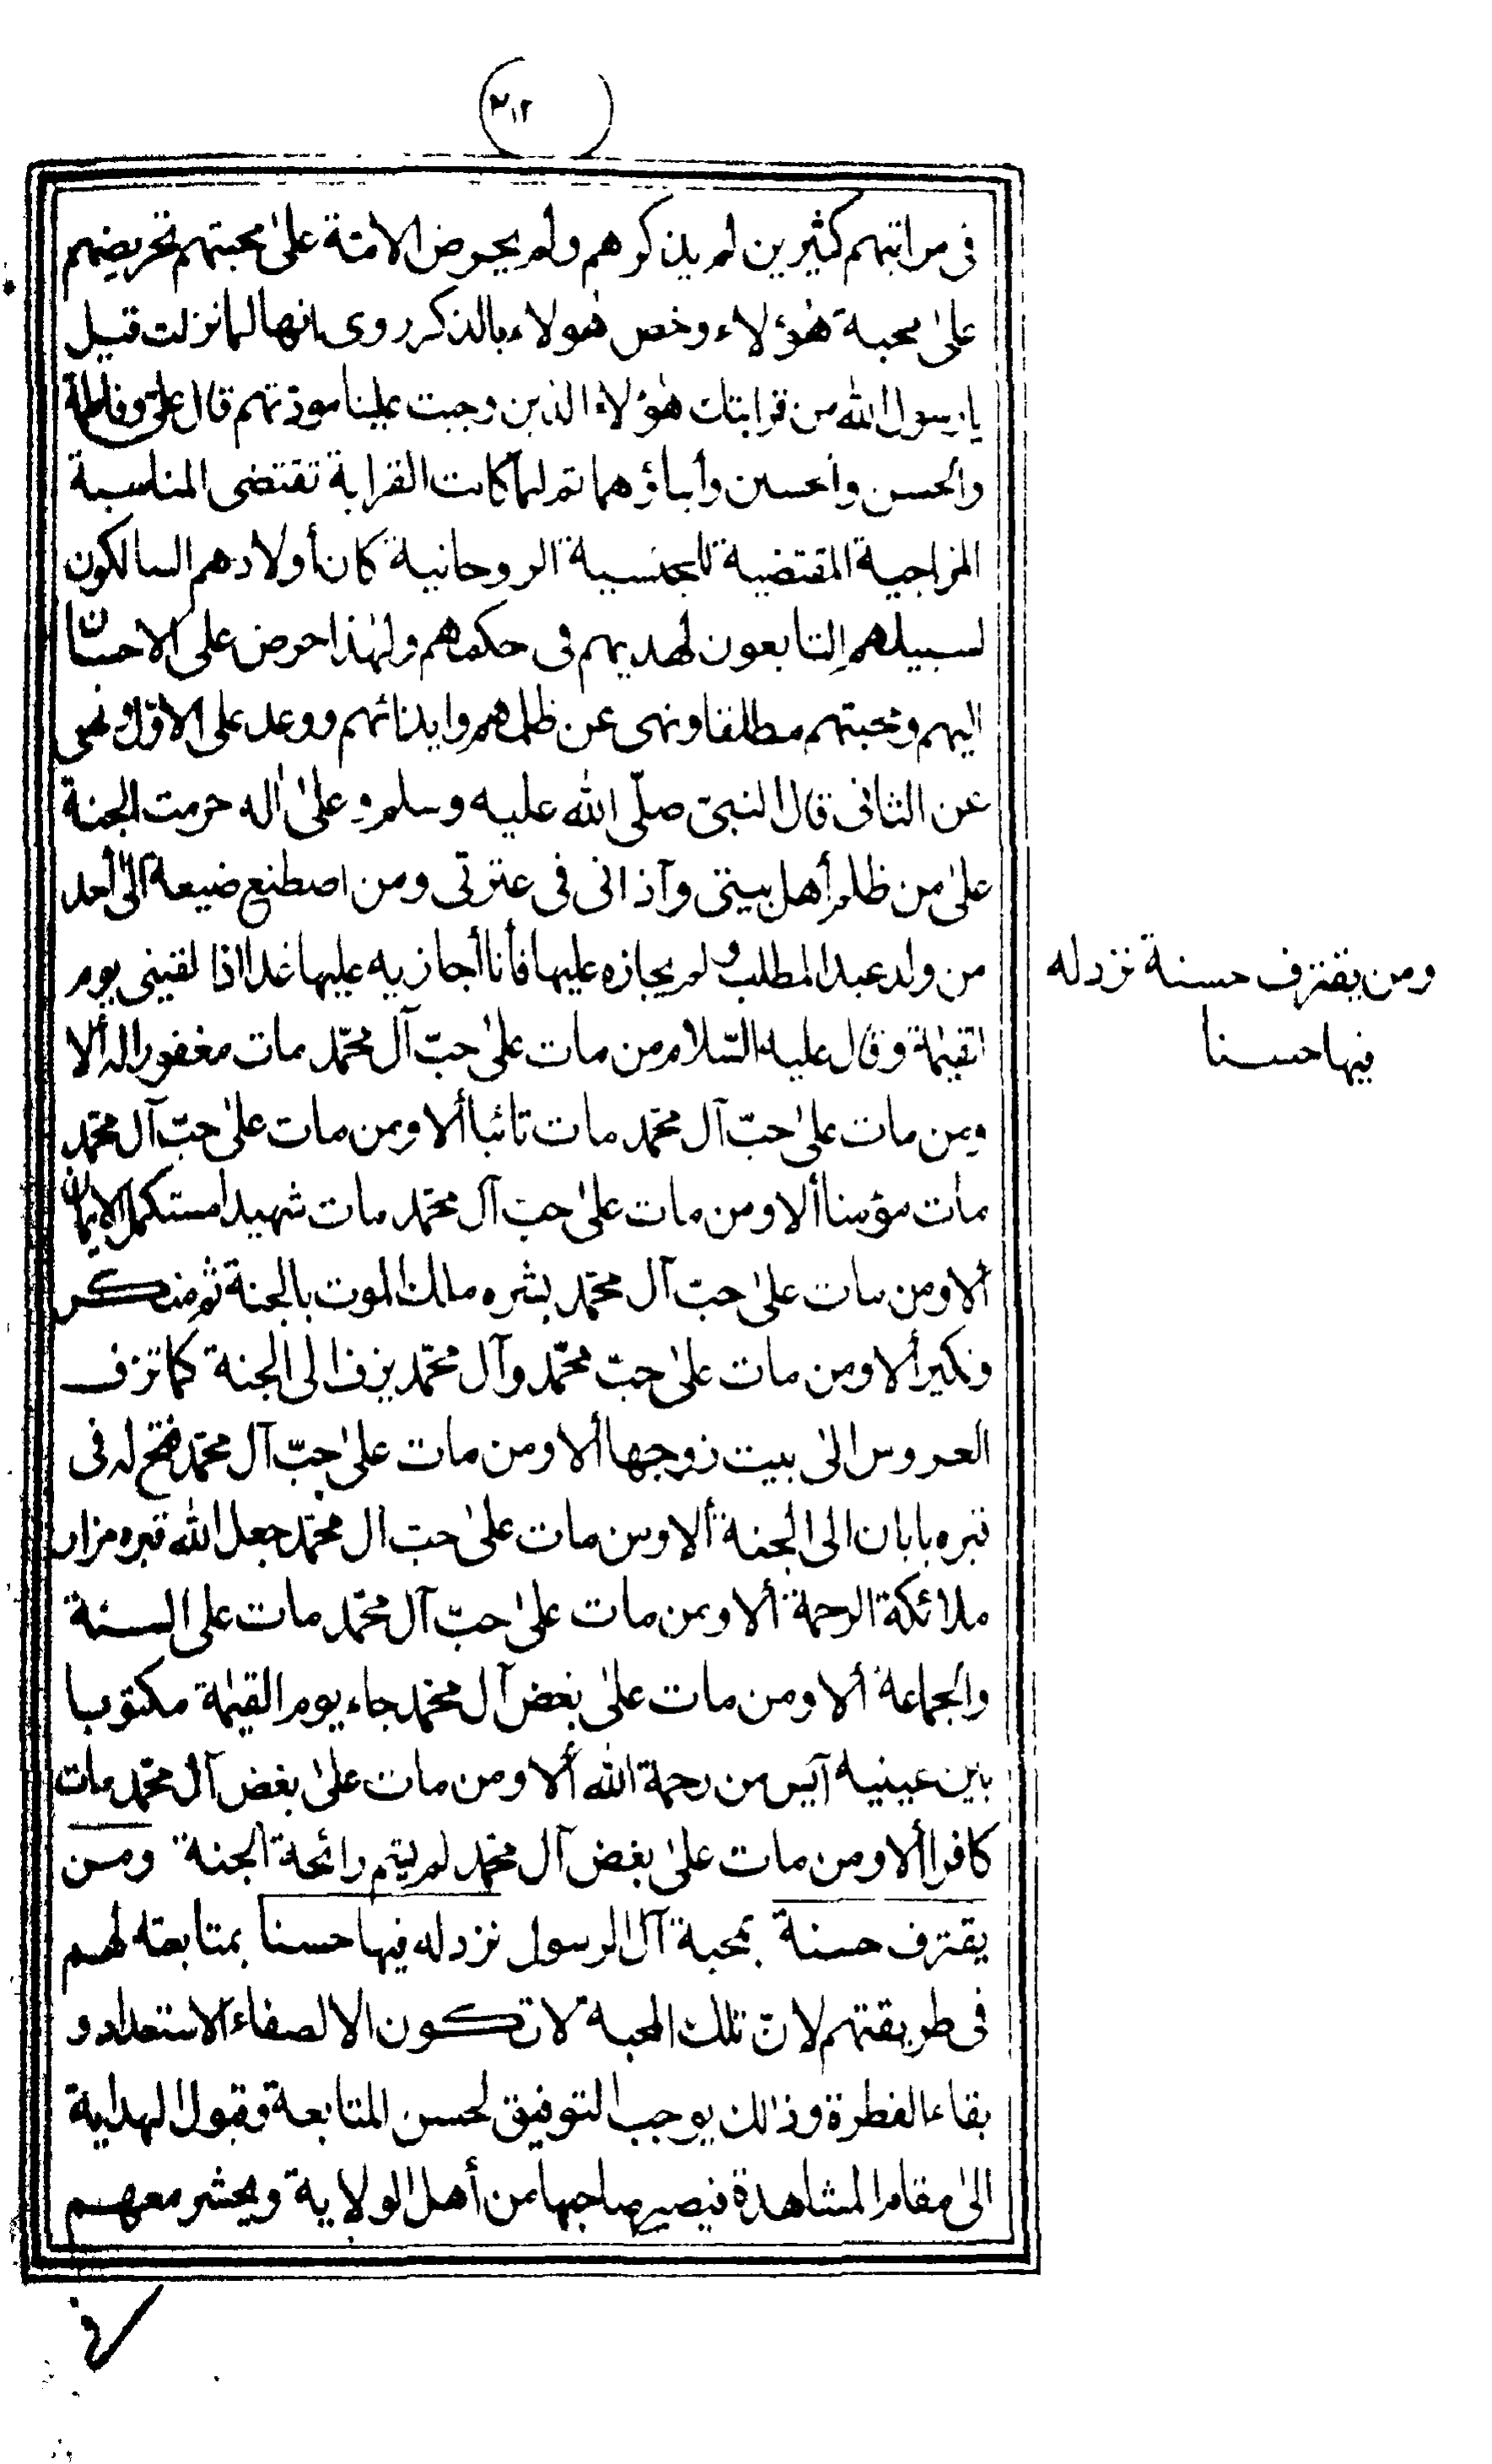 ٣١٢
فى مراتبهم كثيرين لم يذكرهم ولم يحرض الامّة علىٰ محبتهم تحريضهم
علىٰ محبة هٰؤلاء وخص هٰولاء بالذكر روى انها لما نزلت قيل
يارسول الله من قرابتك هٰؤلاء الذين وجبت علينا مودّتهم قال علىّ وفاطمة
والحسن والحسين وأبناؤهما ثم لما كانت القرابة تقتضى المناسبة
المزاجية المقتضية للجنسية الروحانية كان أولادهم السالكون
لسبيلهم التابعون لهديهم فى حكمهم ولهٰذا حرض على الاحسان
اليهم ومحبتهم مطلقا ونهى عن ظلمهم وايذائهم ووعد على الاوّل ونهى
عن الثانى قال النبىّ صلّى الله عليه وسلم وعلىٰ اٰله حرمت الجنة
علىٰ من ظلم أهل بيتى وآذانى فى عترتى ومن اصطنع ضيعة الىٰ أحد
من ولد عبد المطلب ولم يجازه عليها فأنا أجازيه عليها غدا اذا لقينى يوم
القيٰمة وقال عليه السّلام من مات علىٰ حبّ آل محمّد مات مغفورا له ألا
ومن مات علىٰ حبّ آل محمّد مات تائبا ألا ومن مات علىٰ حبّ آل محمّد
مات مؤمنا ألا ومن مات علىٰ حبّ آل محمّد مات شهيدا مستكمل الايمان
ألا ومن مات علىٰ حبّ آل محمّد بشره ملك الموت بالجنة ثم منكر
ونكير ألا ومن مات علىٰ حبّ محمّد وآل محمّد يزف الى الجنة كما تزف
العروس الىٰ بيت زوجها ألا ومن مات علىٰ حبّ آل محمّد فتح له فى
قبره بابان الى الجنة ألا ومن مات علىٰ حبّ ال محمّد جعل الله قبره مزار
ملائكة الرحمة ألا ومن مات علىٰ حبّ آل محمّد مات على السنة
والجماعة ألا ومن مات علىٰ بغض آل محمّد جاء يوم القيٰمة مكتوبا
بين عينيه آيس من رحمة الله ألا ومن مات علىٰ بغض آل محمّد مات
كافرا ألا ومن مات علىٰ بغض آل محمّد لم يشم رائحة الجنة ومن
يقترف حسنة بمحبة آل الرسول نزد له فيها حسنا بمتابعته لهم
فى طريقتهم لانّ تلك المحبة لا تكون الا لصفاء الاستعداد و
بقاء الفطرة وذٰلك يوجب التوفيق لحسن المتابعة وقبول الهداية
الىٰ مقام المشاهدة فيصير صاحبها من أهل الولاية ويحشر معهم
ومن يقترف حسنة نزد له
فيها حسنا